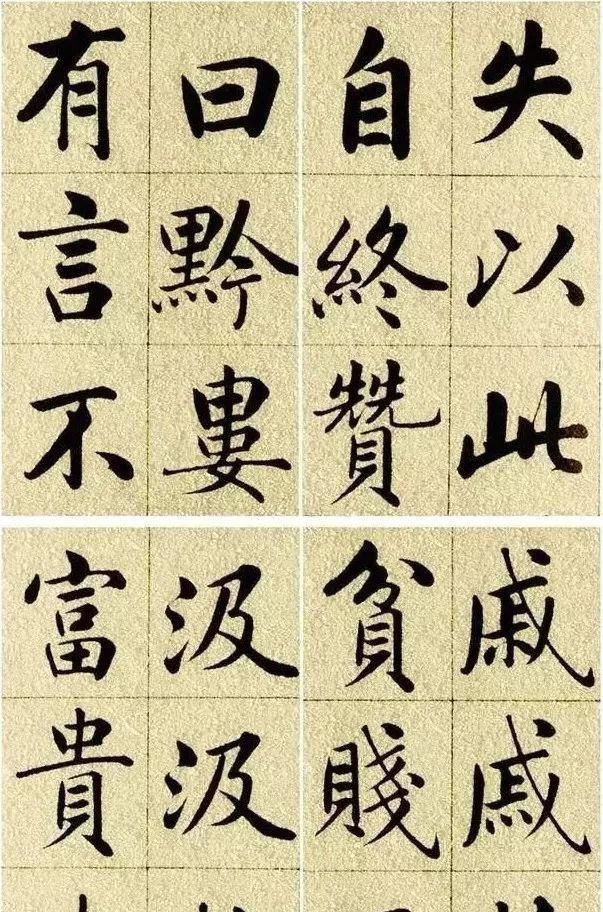 失以此
自終贊
曰黔婁
有言不
戚戚
貧賤
汲汲
富貴